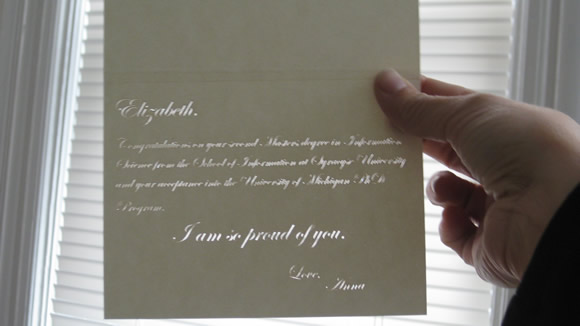 Elizabeth,
Congratulations on your second Masters degree in Information
Science from the School of Information at Syracuse University
and your acceptance into the University of Michigan PhD
Program.
I am so proud of you.
Love,
Anna